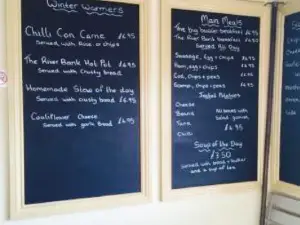 Winter Warmers
Chilli Con Carne £6.95
Served with Rice or chips
The River Bank Hot Pot £6.95
Served with Crusty bread
Homemade Stew of the day
Served with crusty bread £6.95
Cauliflower Cheese £6.95
Served with garlic Bread
Main Meals
The big busster breakfast £6.95
The River Bank breakfast
Served All Day
Sausage, Egg + chips £6.95
Ham, egg + chips £6.95
Cod, chips + peas £6.95
chips + peas £6.95
Jacket Potatoes
Cheese
Beans
Tuna
Chilli
All served with
salad garnish
£6.95
Soup of the Day
£3.50
Served with bread + butter
and a cup of tea